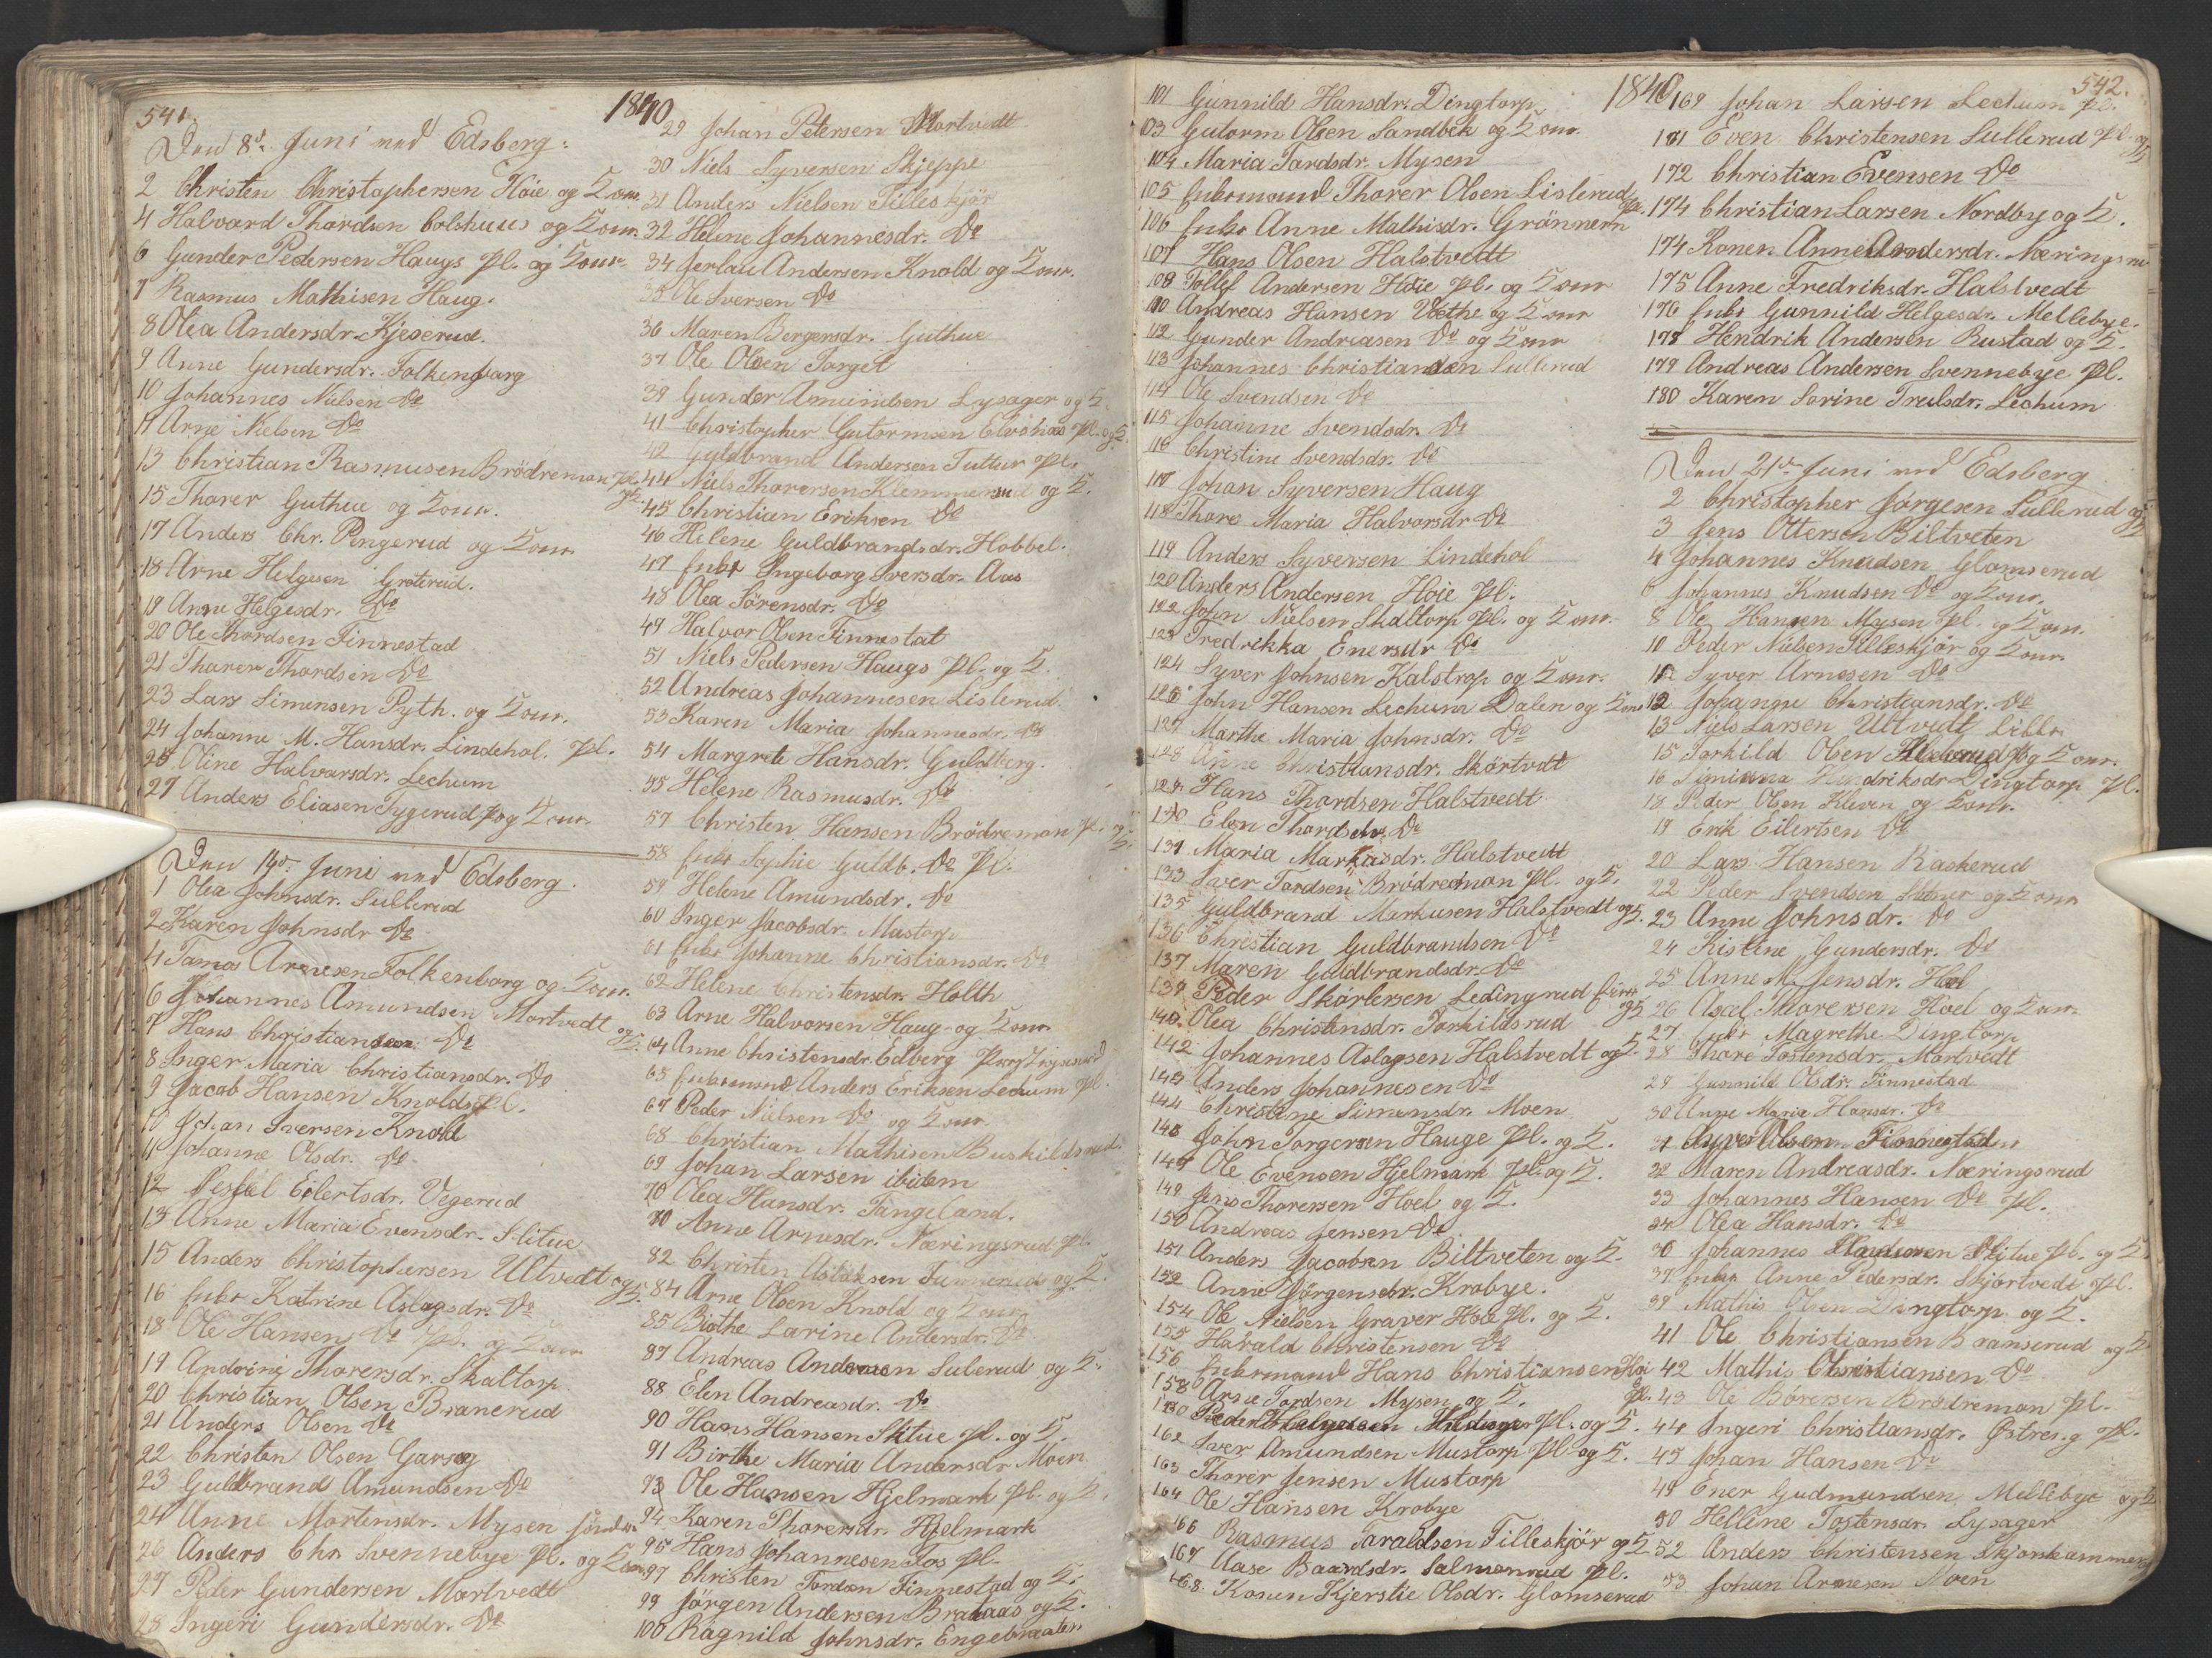 541.
1840
Den 8de Juni ved Edsberg:
2 Christen Christophersen Höie og
4 Halvord Thordsen Colshuus og
6 Gunder Pedersen Haugs Pl. og
7 Rasmus Mathisen Haug.
8 Olia Andersdr. Kjeserud.
9 Anne Gundersdr. Folkenborg
10 Johannes Nielsen Do
11 Arne Nielsen Do
13 Christian Rasmusen Brödreman Pl. og
15 Thorer Guthue og
17 Anders Chr. Pengerud og
18 Arne Helgesen Groterud.
19 Anne Helgesdr. Do
20 Ole Thordsen Finnestad
21 Thorer Thordsen Do
23 Lars Simensen Pyth. og
24 Johanne M. Hansdr. Lindehol. Pl.
25 Oline Halvorsdr. Lechum
27 Anders Eliasen Tygerud og
Den 14de Juni ved Edsberg.
1 Olea Johnsdr. Sullerud
2 Karen Johnsdr Do
4 Tamas Arnesen Folkenborg og
6 Johannes Amundsen Mortvedt og
7 Hans Christiansen Do
8 Inger Maria Christiansdr. Do
9 Jacob Hansen Knolds Pl.
10 Johan Iversen Knold
11 Johanne Olsdr. Do
12 Eilertsdr. Vegerud
13 Anne Maria Evensdr. Slitue
15 Anders Christophersen Ultvedt og
16 Enke Katrine Aslagsdr. Do
18 Ole Hansen Do Pl. og
19 Andrine Thorersdr. Skaltorp
20 Christian Olsen Branerud
21 Anders Olsen Do
22 Christen Olsen Garseg
23 Guldbrand Amundsen Do
24 Anne Mortensdr. Mysen
26 Anders Chr. Svennebye Pl. og
27 Peder Gundersen Mortvedt
28 Ingeri Gundersdr. Do
29 Johan Petersen Mortvedt
30 Niels Syversen Skjeppe
31 Anders Nielsen Tilleskjör
32 Helene Johannesdr. Do
34 Andersen Knold og
35 Ole Iversen Do
36 Maren Borgersdr. Guthue
37 Ole Olsen Torget
39 Gunder Amundsen Lysager og
41 Christopher Gutormsen Elvshaas Pl. og
42 Guldbrand Andersen Tuttur Pl.
44 Niels Thorersen Klemmersud og
45 Christian Eriksen Do
46 Helene Guldbrandsdr. Hobbel.
47 Enke Ingeborg Iversdr. Aas
48 Olea Sörensdr. Do
49 Halvor Olsen Finnestat
51 Niels Pedersen Haugs Pl. og
52 Andreas Johannesen Lislerud
53 Karen Maria Johannesdr. Do
54 Margrete Hansdr. Guldberg.
55 Helene Rasmusdr. Do
57 Christen Hansen Brödreman Pl. og
58 Enke Sophie Guldb. Do Pl.
59 Helene Amundsdr. Do
60 Inger Jacobsdr. Mastorp
61 Enke Johanne Christiansdr. Do
62 Helene Christensdr. Holth
63 Arne Halvorsen Haug og
64 Anne Christensdr. Edberg
65 Enkemand Anders Eriksen Lechum Pl.
67 Peder Nielsen Do og
68 Christian Mathisen Buskildsrud
69 Johan Larsen ibidem
70 Olea Hansdr. Tangeland.
80 Anne Arnesdr. Næringsrud Pl.
82 Christen Aslaksen og
84 Arne Olsen Knold og
85 Birthe Larine Andersdr. Do
87 Andreas Andersen Sulerud og
88 Elen Andreasdr. Do
90 Hans Hansen Slitue Pl. og
91 Birthe Maria Andersdr. Moen
93 Ole Hansen Hjelmark Pl. og
94 Karen Thorersdr. Hjelmark
95 Hans Johannesen Fos Pl.
97 Christen Tordsen Finnestad og
99 Jörgen Andersen Brataas og
100 Ragnild Johnsdr. Engebraaten
542.
1840
101 Gunnild Hansdr. Dingtorp
103 Gutorm Olsen Sandbek og
104 Maria Tordsdr. Mysen
105 Enkemand Thorer Olsen Lislerud Pl.
106 Enke Anne Mathisdr. Grönnern
107 Hans Olsen Halstvedt
108 Tollef Andersen Höie Pl. og
110 Andreas Hansen Vethe og
112 Gunder Andreasen Do og
113 Johannes Christiansen Sullerud
114 Ole Svendsen Do
115 Johanne Svendsdr. Do
116 Christine Svendsdr. Do
117 Johan Syversen Haug
118 Thore Maria Halvorsdr Do
119 Anders Syversen Lindehol
120 Anders Andersen Höie Pl.
122 John Nielsen Skaltorp Pl. og
123 Fredrikka Enersdr Do
124 Syver Johnsen Kalstrop og
126 John Hansen Lechum Dalen og
127 Marthe Maria Johnsdr. Do
128 Anne Christiansdr. Skörtvdt
129 Hans Thordsen Halstvedt
130 Elen Thordsdr. Do
131 Maria Markusdr. Halstvedt
133 Iver Tordsen Brödreman Pl. og
135 Guldbrand Markusen Halstvedt og
136 Christian Guldbrandsen Do
137 Maren Guldbrandsdr. Do
139 Peder Ledingrud og
140 Olea Christensdr. Torkildsrud
142 Johannes Aslagsen Halstvedt og
143 Anders Johannesen Do
144 Christine Simensdr. Moen
146 John Torgersen Hauge Pl. og
147 Ole Evensen Hjelmark Pl. og
149 Jens Thorersen Hoel og
150 Andreas Jensen Do
151 Anders Jacobsen Biltveten og
152 Anne Jörgensdr. Krobye.
154 Ole Nielsen Graver Höie Pl. og
155 Harald Christensen Do
156 Enkemand Hans Christiansen Höi Pl.
158 Arne Tordsen Mysen og
160 Peder Pl. og
162 Iver Amundsen Mustorp Pl. og
163 Thorer Jensen Mustorp
164 Ole Hansen Krobye
166 Rasmus Taraldsen Tilleskjör og
167 Aase Baardsdr. Salmonrud Pl.
168 Konen Kjerstie Olsdr. Glomserud
169 Johan Larsen Lechum Pl.
171 Even Christensen Sullerud Pl. og
172 Christian Evensen Do
174 Christian Larsen Nordby og
174 Konen Anne Andersdr. Næringsrud
175 Anne Fredriksdr. Halstvedt
176 Enke Gunnild Helgesdr. Mellebye.
178 Hendrik Andersen Rustad og
179 Andreas Andersen Svennebye Pl.
180 Karen Sorine Trulsdr. Lechum
Den 21de Juni ved Edsberg
2 Christopher Jörgesen Sullerud og
3 Jens Ottersen Biltveten
4 Johannes Knudsen Glomserud
6 Johannes Knudsen Do og
8 Ole Hansen Mysen Pl. og
10 Peder Nielsen Tilleskjör og
11 Syver Arnesen Do
12 Johanne Christiansdr. Do
13 Niels Larsen Ultvedt
15 Torkild Olsen og
16 Hendriksdr Dingtorp Pl.
18 Peder Olsen Kleven og
19 Erik Eilertsen Do
20 Lars Hansen Raskerud
22 Peder Svendsen og
23 Anne Johnsdr. Do
24 Kistine Gundersdr. Do
25 Anne M. Jensdr. Hoel
26 Axel Thorersen Hoel og
27 Enke Magrethe Dingtorp
28 Thore Tostensdr. Mortvedt
29 Gunnild Olsdr. Finnestad
30 Anne Maria Hansdr. Do
31 Syver Olsen Finnestad
32 Maren Andreasdr. Næringsrud
33 Johannes Hansen Do Pl.
34 Olea Hansdr. Do
36 Johannes Slitue Pl. og
37 Enke Anne Pedersdr. Skjortvedt Pl.
39 Mathis Olsen Dingtorp og
41 Ole Christiansen Branserud og
42 Mathis Christiansen Do
43 Ole Börersen Brödreman Pl.
44 Ingeri Christiansdr. Östreng Pl.
45 Johan Hansen Do
49 Ener Gudmundsen Mellebye og
50 Hellene Tostensdr. Lysager
52 Anders Christensen
53 Johan Arnesen Moen